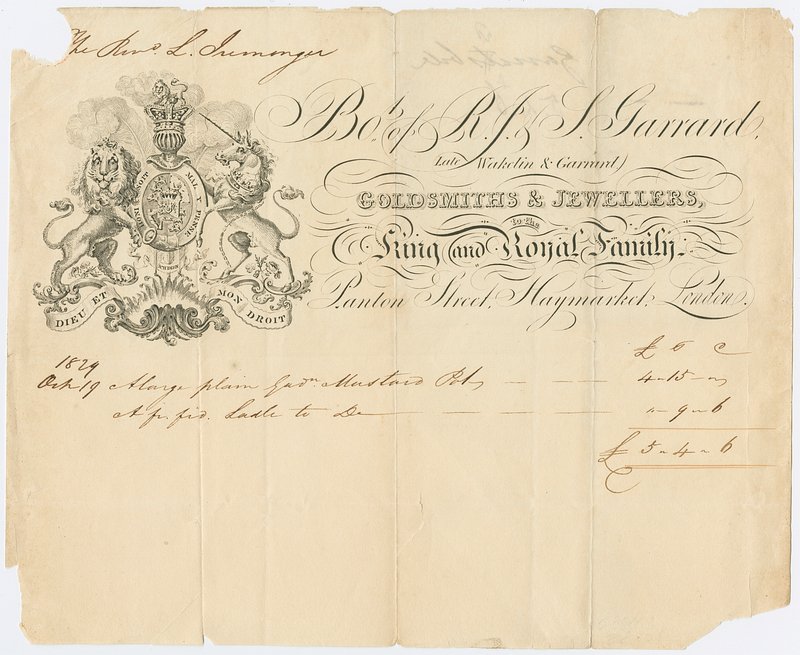 The Revd. L. Iremonger
Bot. of R. J. & S. Garrard,
(Late Wakelin & Garrard)
GOLDSMITHS & JEWELLERS,
to the
King and Royal Family.
Panton Street, Haymarket, London.
HONI SOIT QUI MAL Y PENSE
DIEU ET MON DROIT
1829
Octr 19 A large plain Gadn Mustard Pot 4 - 15 -
A fid. Ladle to Do - 9 - 6
£ 5 - 4 - 6